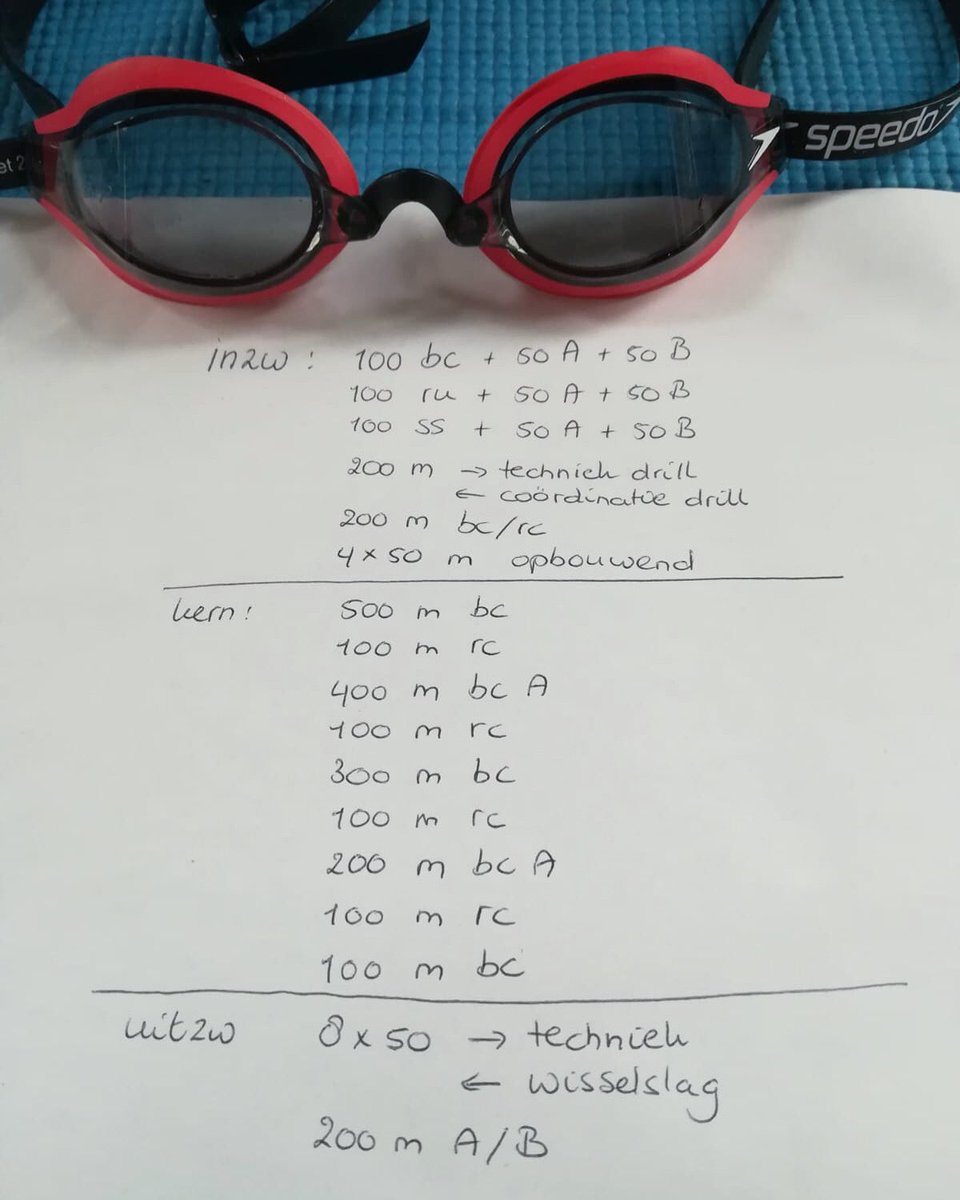 et 2
speedo
inzw: 100 bc + 50 A + 50 B
100 ru + 50 A + 50 B
100 ss + 50 A + 50 B
200 m → techniek drill
← coördinatie drill
200 m bc/rc
4 x 50 m opbouwend
kern: 500 m bc
100 m rc
400 m bc A
100 m rc
300 m bc
100 m rc
200 m bc A
100 m rc
100 m bc
uitzw 8 x 50 → techniek
← wisselslag
200 m A/B